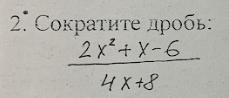 2.* Сократите дробь:
2x²+x-6
4x+8